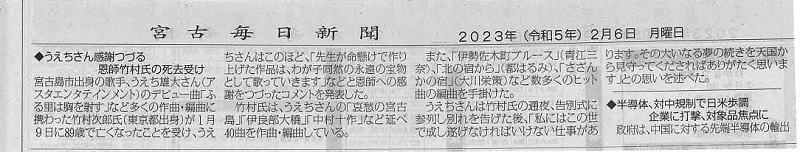 宮古毎日新聞
2023年(令和5年)2月6日 月曜日
◆うえちさん感謝つづる
恩師竹村氏の死去受け
宮古島市出身の歌手、うえち雄大さん(ア
スタエンタテインメント)のデビュー曲「ふ
る里は胸を射す」など多くの作曲・編曲に
携わった竹村次郎氏(東京都出身)が1月
9日に89歳で亡くなったことを受け、うえ
ちさんはこのほど、「先生が命懸けで作り
上げた作品は、わが子同然の永遠の宝物
として歌っていきます」などと恩師への感
謝をつづったコメントを発表した。
竹村氏は、うえちさんの「哀愁の宮古
島」「伊良部大橋」「中村十作」など延べ
40曲を作曲・編曲している。
また、「伊勢佐木町ブルース」(青江三
奈)、「北の宿から」(都はるみ)、「さざん
かの宿」(大川栄策)など数多くのヒット
曲の編曲を手掛けた。
うえちさんは竹村氏の通夜、告別式に
参列し別れを告げた後、「私にはこの世
で成し遂げなければいけない仕事があ
ります。その大いなる夢の続きを天国か
ら見守ってくださればありがたく思いま
す」との思いを述べた。
◆半導体、対中規制で日米歩調
企業に打撃、対象品焦点に
政府は、中国に対する先端半導体の輸出